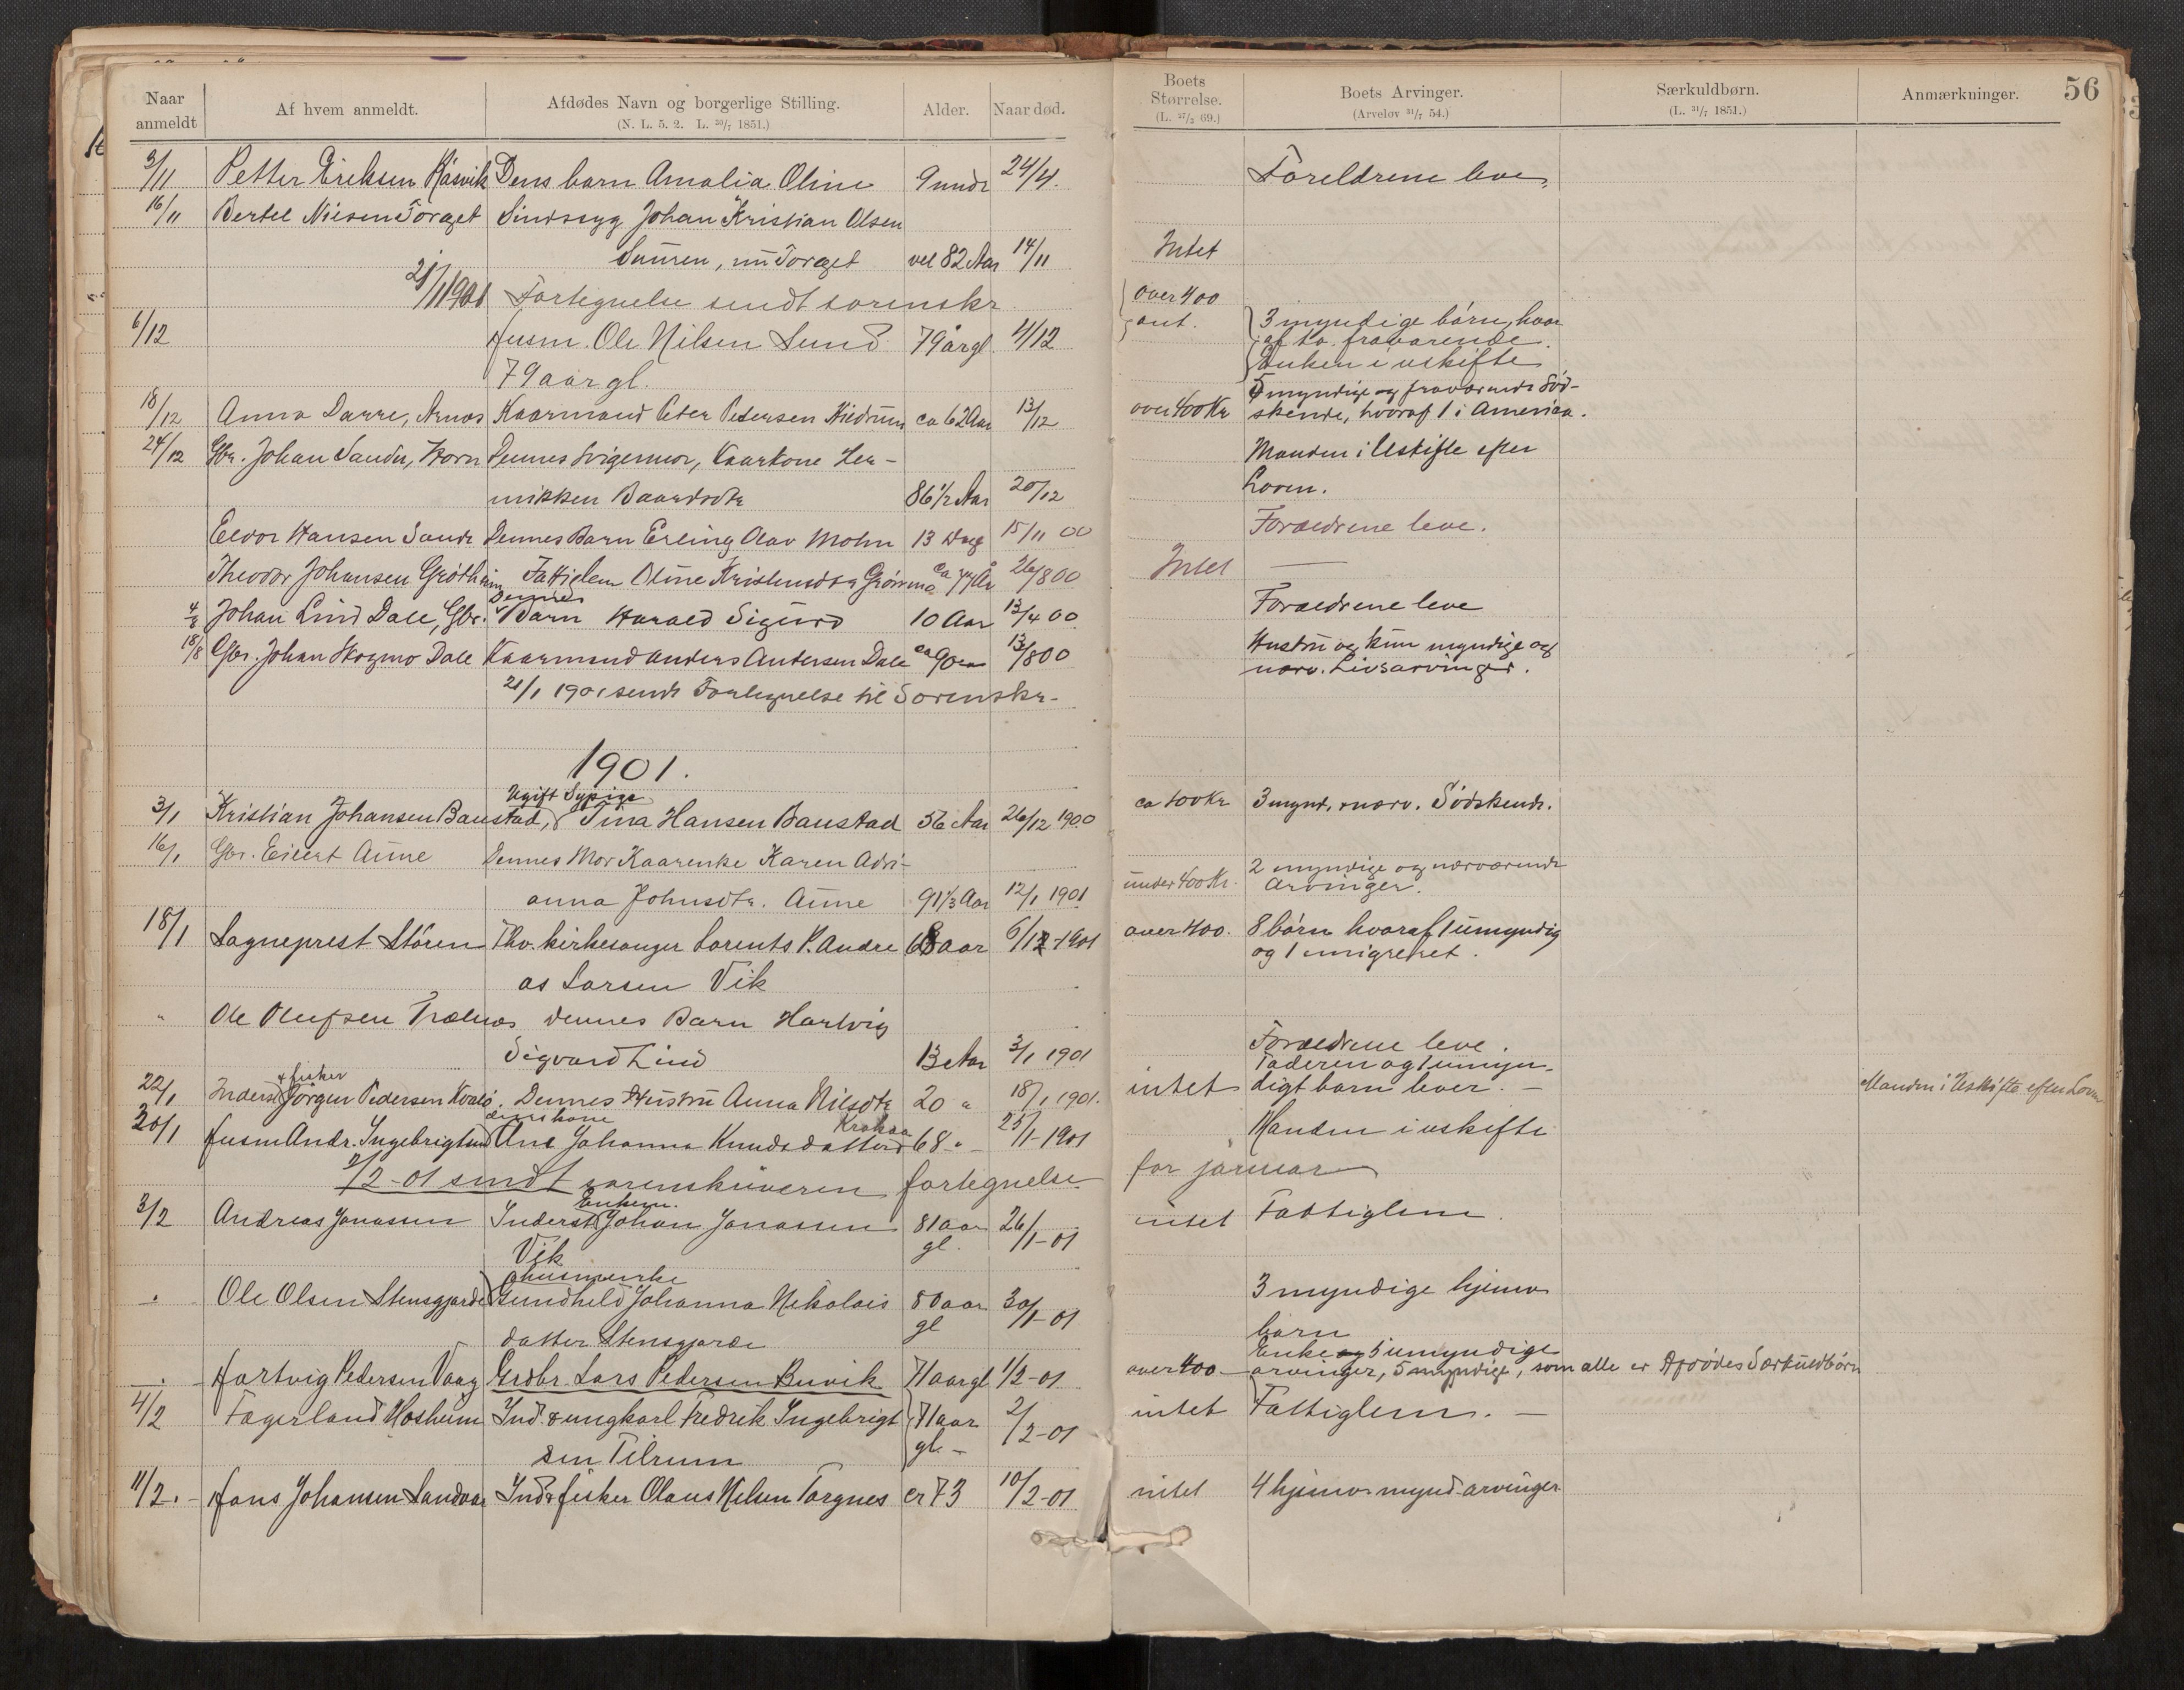 Naar anmeldt
Af hvem anmeldt.
Afdødes Navn og borgerlige Stilling.
(N. L. 5. 2. L. 30/7 1851.)
Alder.
Naar død.
Boets Størrelse.
(L. 27/3 69.)
Boets Arvinger.
(Arvelov 31/7 54.)
Særkuldbørn.
(L. 31/7 1851.)
Anmærkninger.
56
3/11 Petter Eriksen Råsvik Dens barn Amalia Oline 9 mndr 24/4. Foreldrene leve.
16/11 Bertel Nilsen Torget Sindssyg Johan Kristian Olsen
Sauren, nu Torget vel 82 Aar 14/11 Intet
21/1 1901 Fortegnelse sendt sorenskr
6/12 Husm. Ole Nilsen Sund 79 år gl. 4/12 over 400 ant. 3 myndige børn, hvor
af to fraværende.
79 aar gl. Enken i uskifte
18/12 Anna Darre, Arnøs Kaarmand Peter Petersen Hiedrum ca 62 Aar 13/12 over 400 Kr 5 myndige og fraværende Sød-
skende, hvoraf 1 i America.
24/12 Gbr. Johan Sandu, Horn Dennes Svigermor, Kaarkone Hen-
rikken Baardsdtr 86 1/2 Aar 20/12 Manden i Uskifte efter
Loven.
Edvor Hansen Sandr Dennes Barn Erling Olav Mohn 13 Dag 15/11 00 Forældrene leve.
Theodor Johansen Grøtheim Fattiglem Oline Kristensdtr Grønmo ca 77 År 26/8 00 Intet —
4/8 Johan Lind Dale, Gbr. Dennes Barn Harald Sigurd 10 Aar 13/4 00 Forældrene leve
18/8 Gbr. Johan Skogmo Dale Kaarmand Anders Antersen Dale ca 90 aar 13/8 00 Hustru og kun myndige og
nærv. Livsarvinger.
21/1 1901 sendt Fortegnelse til Sorenskr-
1901.
3/1 Kristian Johansen Baustad, Ugift Sypige Tina Hansen Baustad 56 Aar 26/12 1900 ca 400 Kr 3 mynd. nærv. Sødskende.
16/1 Gbr. Eilert Aune Dennes Mor Kaarenke Karen Adri-
anna Johnsdtr. Aune 91 1/3 Aar 12/1 1901 under 400 Kr. 2 myndige og nærværende
Arvinger.
18/1 Sogneprest Støren Fhv. kirkesanger Lorents P. Andre 68 aar 6/1 1901 over 400. 8 børn hvoraf 1 umyndig
og 1 emigreret.
as Larsen Vik
" Ole Olufsen Trælnes dennes Barn Hartvig
Sigvard Lind 13 Aar 3/1 1901 Forældrene leve.
22/1 Inderst & fisker Jørgen Pedersen Kvalø. Dennes Hustru Anna Nilsdtr 20 " 18/1 1901. intet Faderen og 1 umyn-
digt barn lever. — Manden i Uskifte efter Loven
30/1 Husm Andr. Ingebrigtsen dennes kone Ane Johanna Knudsdatter Krokaa 68 " - 25/1 - 1901 Manden i uskifte
2/2 - 01 sendt sorenskriveren fortegnelse for januar
3/2 Andreas Jonassen Inderst Enkem. Johan Jonassen 81 aar gl. 26/1 - 01 intet Fattiglem.
Vik
" Ole Olsen Stensgjarde husmenke Gundhild Johanna Nikolais 80 aar gl 30/1 - 01 3 myndige hjemv
datter Stensgjarde børn
" Hartvig Pedersen Vaag Grdbr. Lars Pedersen Buvik 71 aar gl 1/2 - 01 over 400 - Enke og 5 umyndige
arvinger, 5 myndige, som alle er Afdødes Særkuldbørn
4/2 Fagerland Hosheim Ind. & ungkarl Fredrik Ingebrigt 71 aar gl. - 2/2 - 01 intet Fattiglem. —
sen Tilrum
11/2 . - Hans Johansen Sandvær Ind & fisker Olaus Nilsen Torgnes er 73 10/2 - 01 intet 4 hjemv. mynd. arvinger